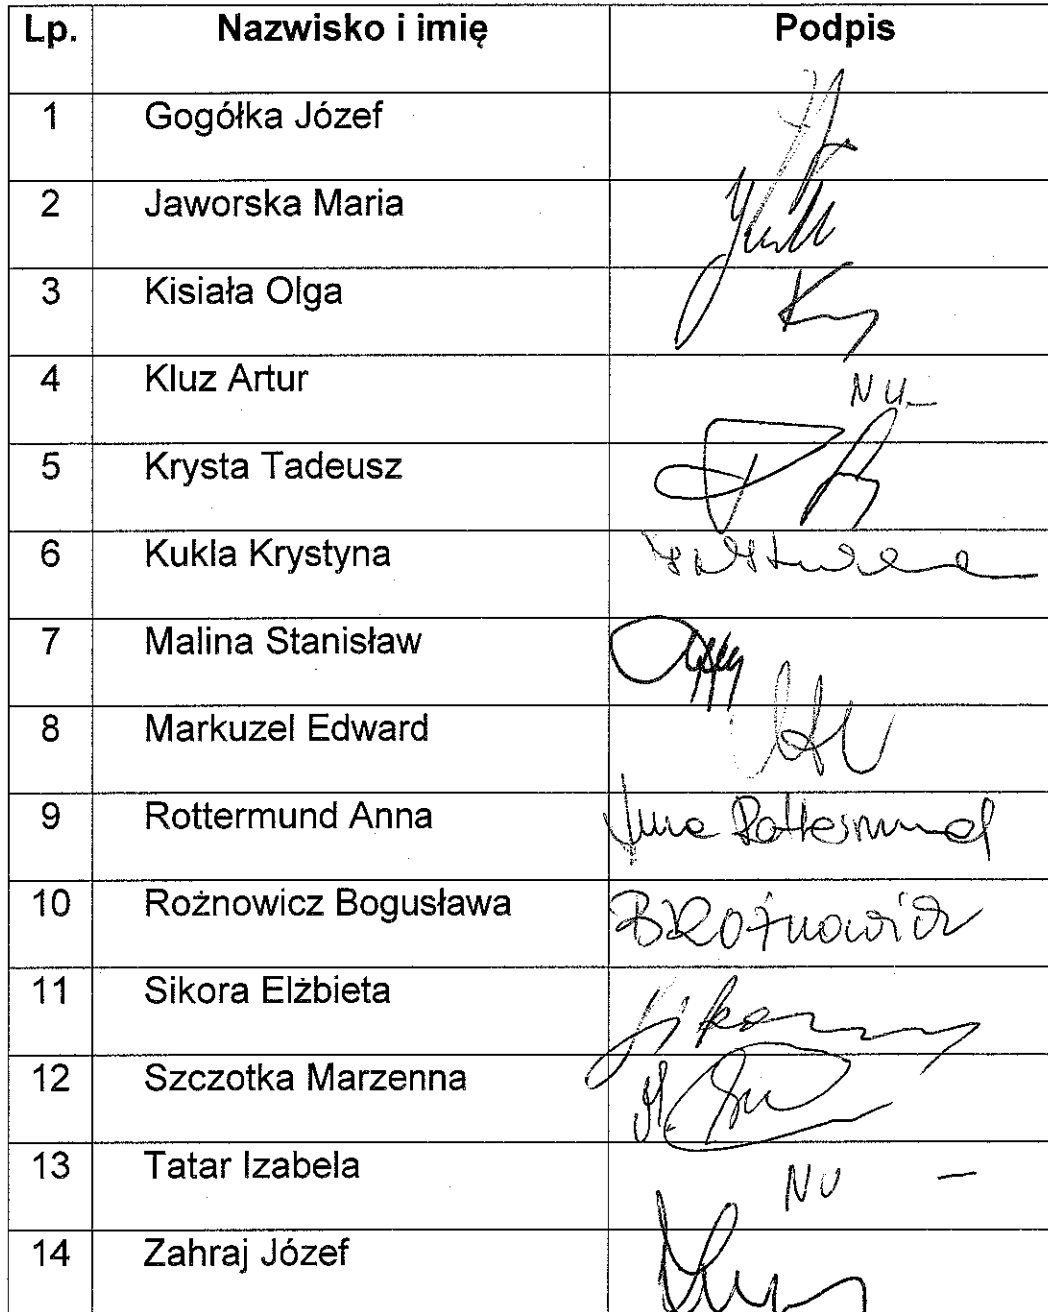 Lp. Nazwisko i imię Podpis
1 Gogółka Józef
2 Jaworska Maria
3 Kisiała Olga
4 Kluz Artur NU
5 Krysta Tadeusz
6 Kukla Krystyna
7 Malina Stanisław
8 Markuzel Edward
9 Rottermund Anna Anna Rottermund
10 Rożnowicz Bogusława BRożnowicz
11 Sikora Elżbieta Sikora
12 Szczotka Marzenna
13 Tatar Izabela NU —
14 Zahraj Józef